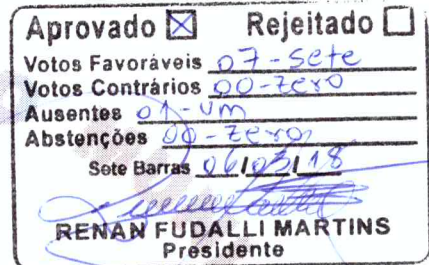 Aprovado ☒ Rejeitado ☐
Votos Favoráveis 07-sete
Votos Contrários 00-zero
Ausentes 01-um
Abstenções 00-zero
Sete Barras 06/03/18
RENAN FUDALLI MARTINS
Presidente